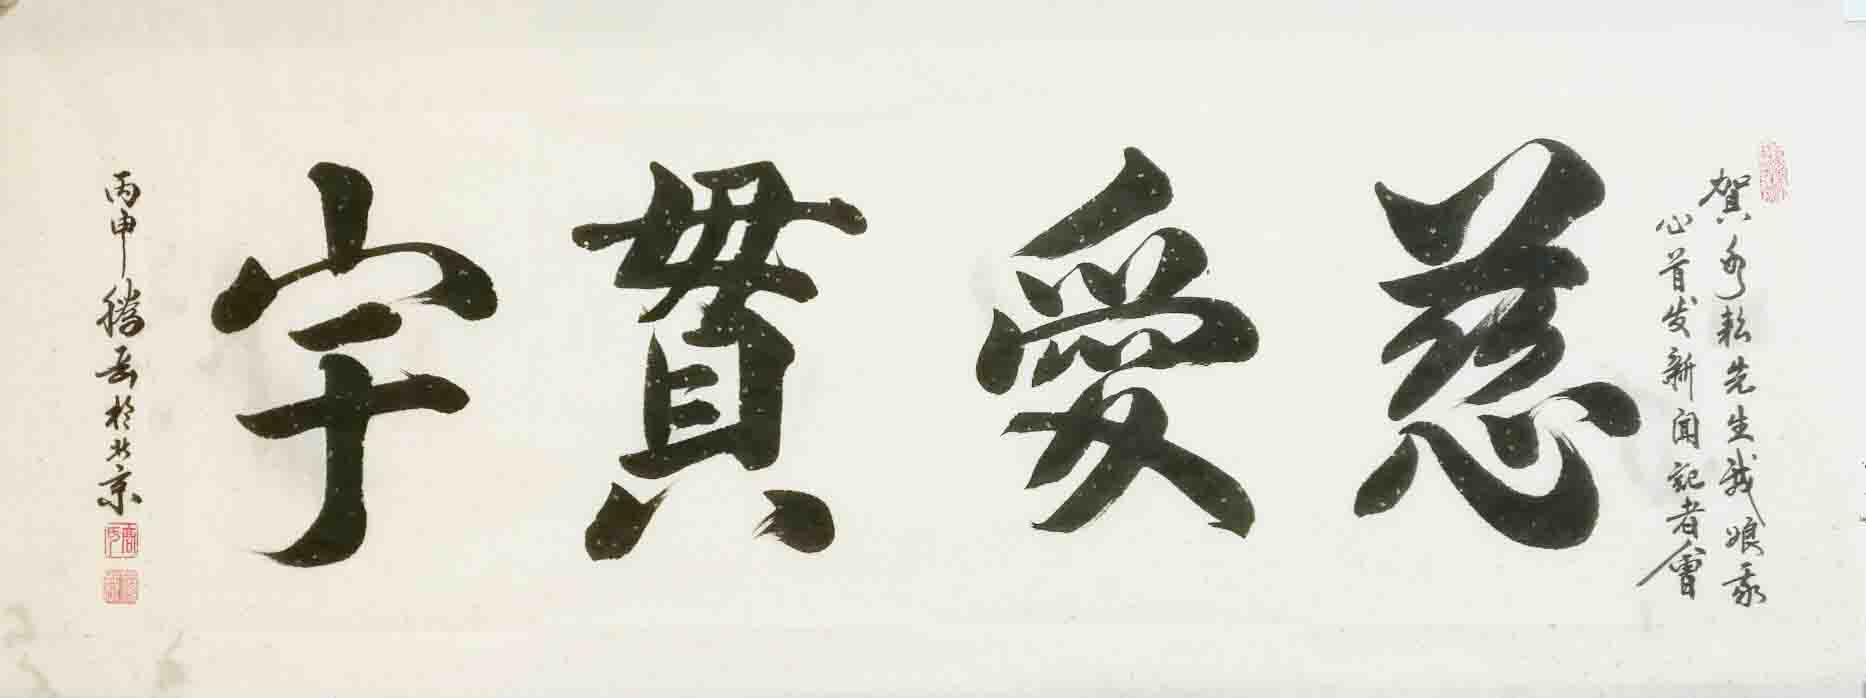 賀 耘先生我娘我
心首发新闻記者會
慈愛貫宇
丙申腾岳於北京